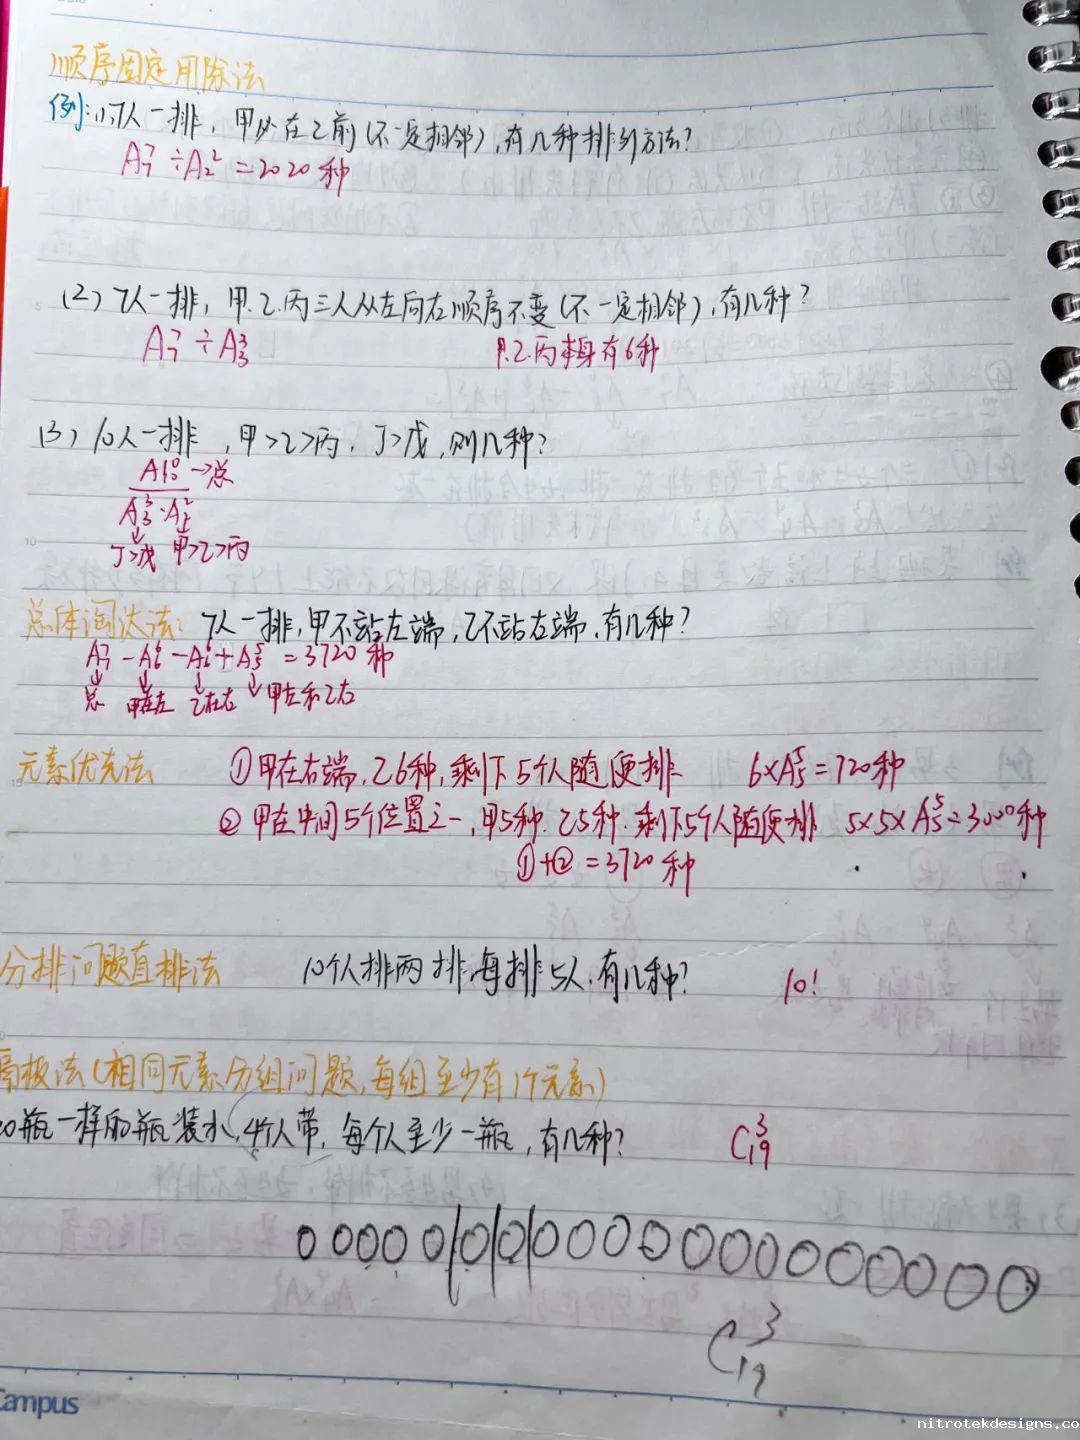 顺序固定用除法
例:(1)7人一排,甲必在乙前(不一定相邻),有几种排列方法?
A₇⁷÷A₂²=2020种
(2)7人一排,甲.乙.丙三人从左向右顺序不变(不一定相邻),有几种?
A₇⁷÷A₃³ 甲.乙.丙本身有6种
(3)10人一排,甲>乙>丙,丁>戊,则几种?
A₁₀¹⁰→总
A₃³·A₂²
丁>戊 甲>乙>丙
总体淘汰法:7人一排,甲不站左端,乙不站右端,有几种?
A₇⁷-A₆⁶-A₆⁶+A₅⁵=3720种
总 甲在左 乙在右 甲左和乙右
元素优先法 ①甲在右端,乙6种,剩下5个人随便排 6×A₅⁵=720种
②甲在中间5个位置之一,甲5种.乙5种.剩下5个人随便排 5×5×A₅⁵=3000种
①+②=3720种
分排问题直排法 10个人排两排,每排5人,有几种? 10!
隔板法(相同元素分组问题,每组至少有1个元素)
20瓶一样的瓶装水,4个人带,每个人至少一瓶,有几种? C₁₉³
C₁₉³
Campus
nitrotekdesigns.co